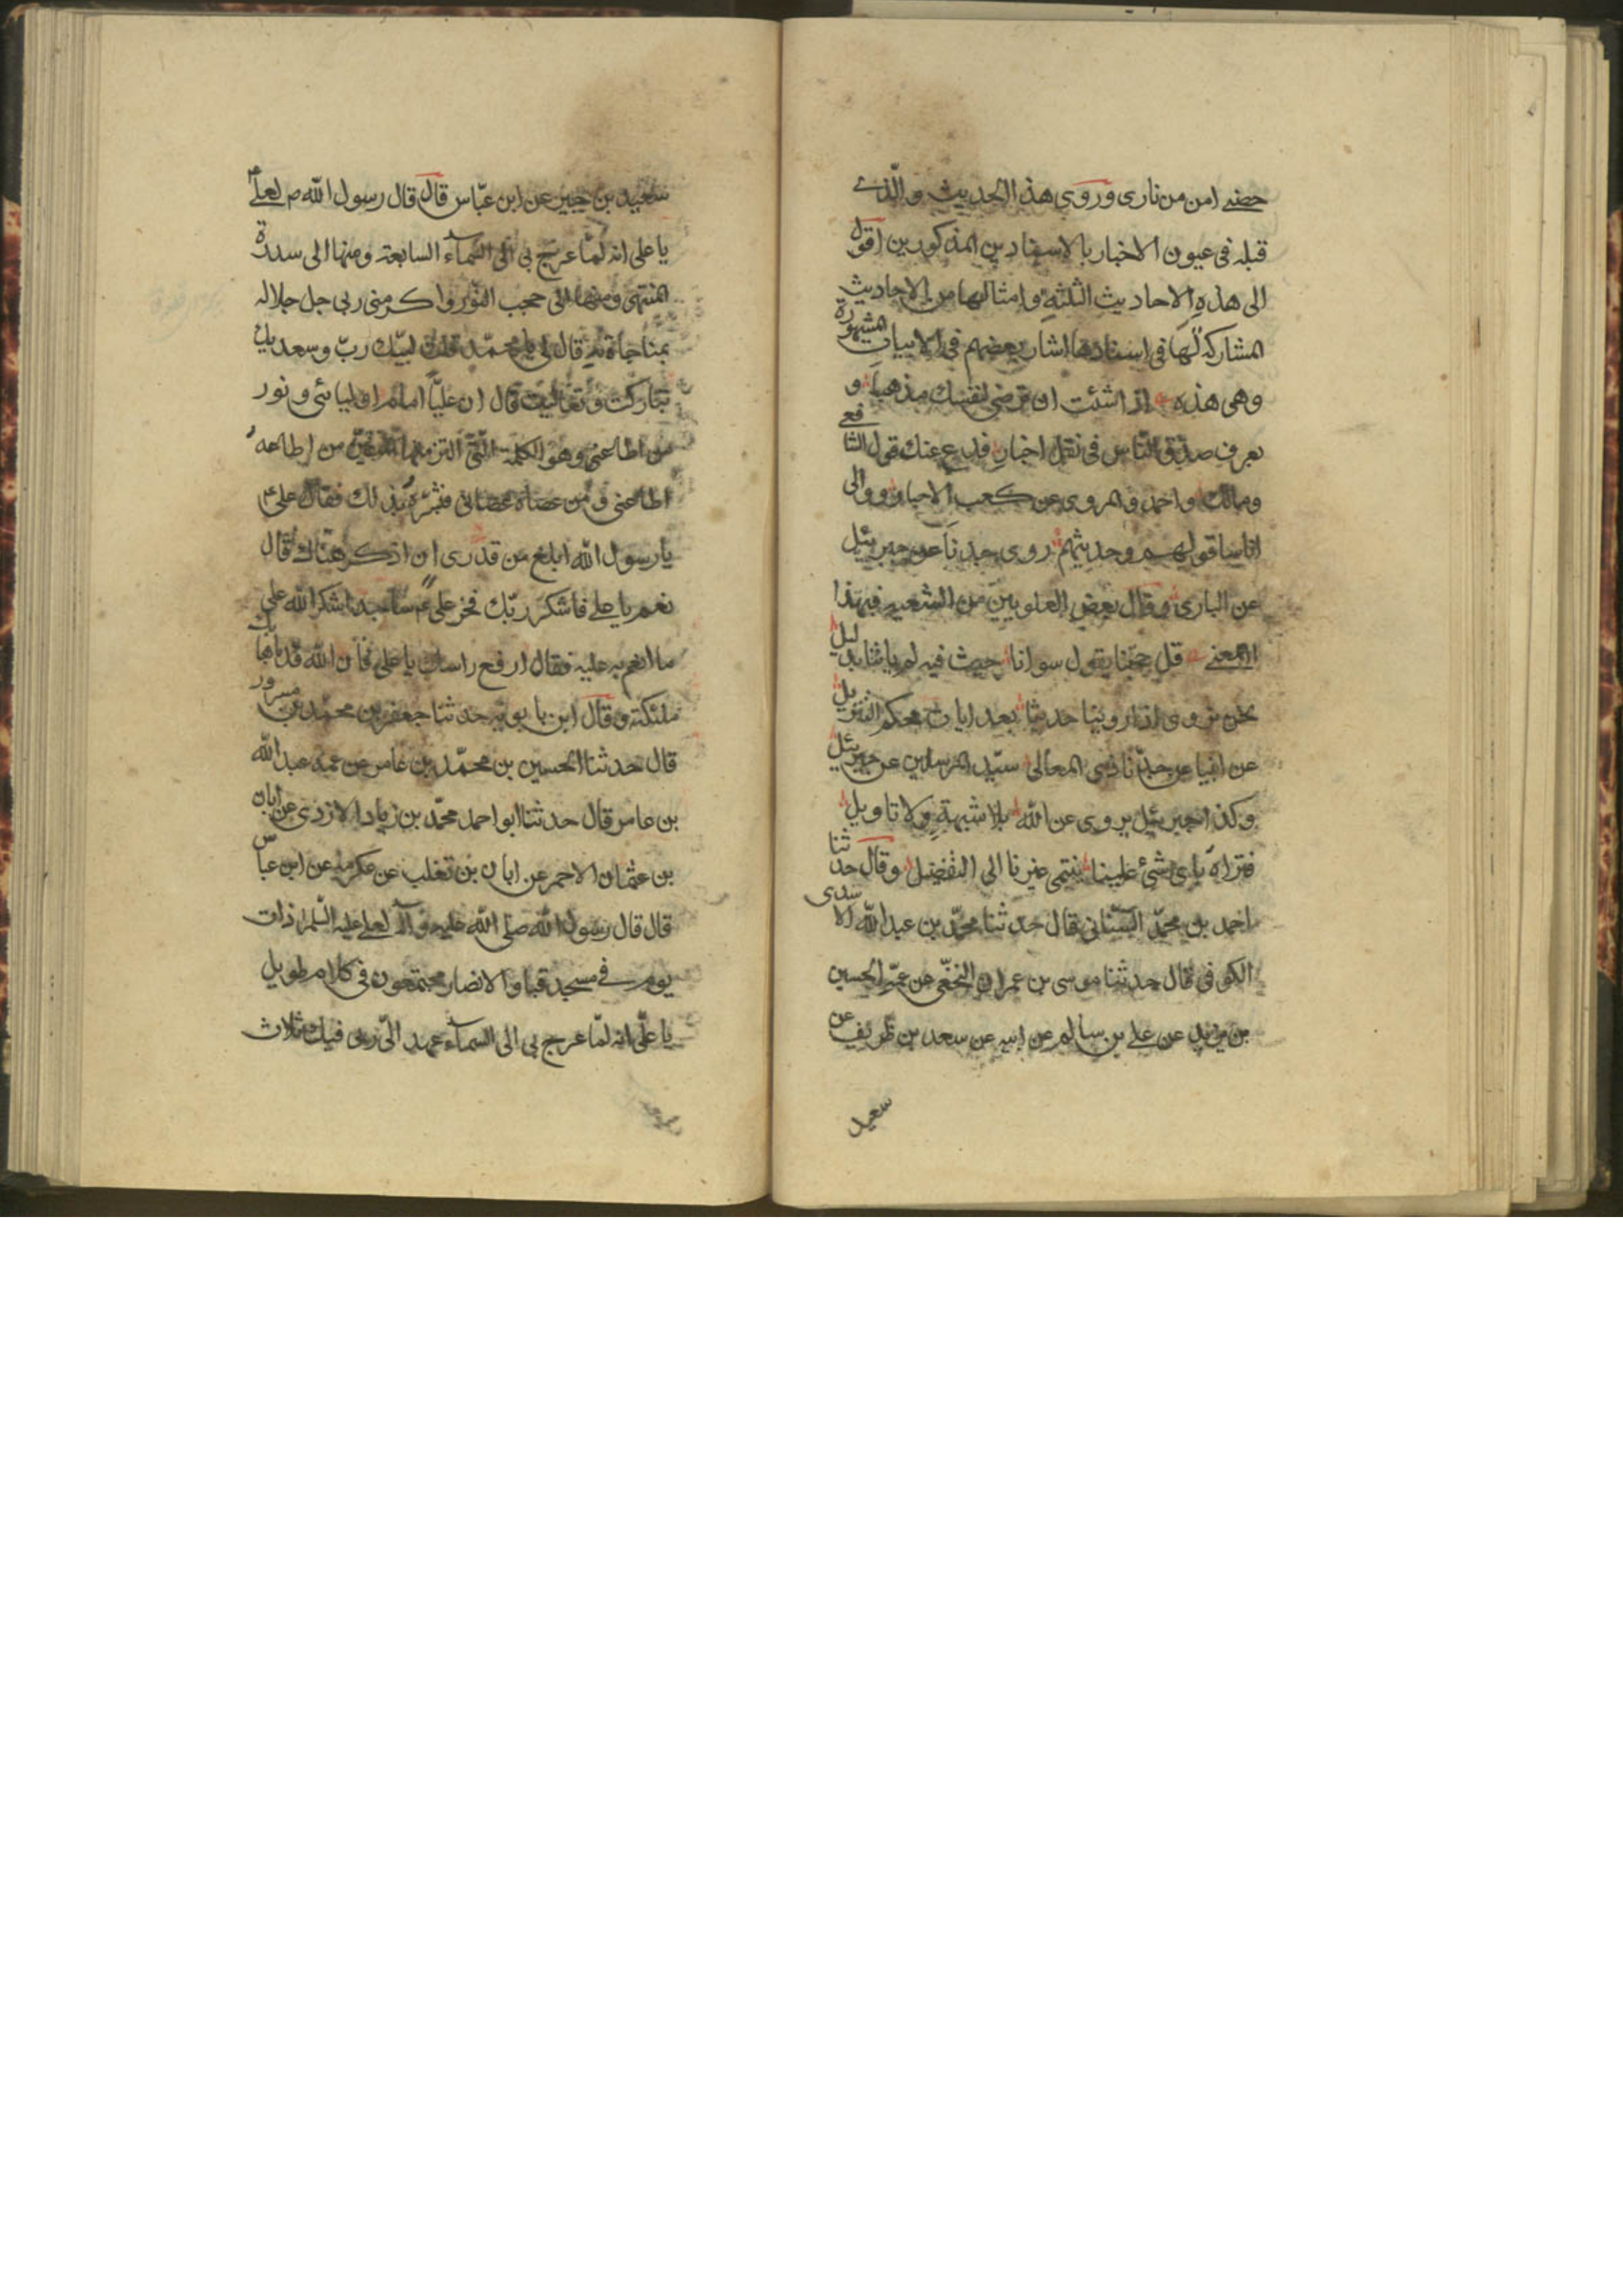 حصني امن من ناري وروى هذا الحديث والّذے
قبله فى عيون الاخبار بالاسنادين المذكورين اقول
الى هذه الاحاديث الثلثة وامثالها من الاحاديث
المشاركة لها فى اسنادها اشار بعضهم فى الابيات المشهورة
وهى هذه اذا شئت ان ترضى لنفسك مذهبا و
تعرف صدق الناس فى نقل اخبار فدع عنك قول الشافعے
ومالك واحمد والمروى عن كعب الاحبار ووالى
اناسا قولهم وحديثهم روى جدنا عن جبرئيل
عن البارى وقال بعض العلويين من الشعر فى هذا
المعنے قل لمن حجنا بقول سوانا حيث فيه لم ياتنا بدليل
نحن نروى اذا روينا حديثا بعد ايات محكم التنزيل
عن ابينا عن جدّنا ذى المعالى سيّد المرسلين عن جبرئيل
وكذا جبرئيل يروى عن اللّٰه بلا شبهة ولا تاويل
فتراه باى شئ علينا ينتمى غيرنا الى التفضيل وقال حدثنا
احمد بن محمّد الشيبانى قال حدثنا محمّد بن عبد اللّٰه الاسدى
الكوفى قال حدثنا موسى بن عمران النخعى عن عمّه الحسين
بن يزيد عن على بن سالم عن ابيه عن سعد بن ظريف عن
سعيد
سعيد بن جبير عن ابن عبّاس قال قال رسول اللّٰه ص لعلے ع
يا على انه لمّا عرج بى الى السماء السابعة ومنها الى سدرة
المنتهى ومنها الى حجب النور واكرمنى ربى جل جلاله
بمناجاته قال لى يا محمّد قلت لبيّك ربّ وسعديك
تباركت وتعاليت قال ان عليّا امام اوليائى ونور
من اطاعنى وهو الكلمة الّتى الزمتها المتقين من اطاعه
اطاعنى ومن عصاه عصانى فبشره بذلك فقال على ع
يا رسول اللّٰه ابلغ من قدرى ان اذكر هناك قال
نعم يا على فاشكر ربّك فخر على ع ساجدا شكرا للّٰه على
ما انعم به عليه فقال ارفع راسك يا على فان اللّٰه قد باهى بك
ملئكته وقال ابن بابويه حدثنا جعفر بن محمّد بن مسرور
قال حدثنا الحسين بن محمّد بن عامر عن عمه عبد اللّٰه
بن عامر قال حدثنا ابو احمد محمّد بن زياد الازدى عن ابان
بن عثمان الاحمر عن ابان بن تغلب عن عكرمة عن ابن عباس
قال قال رسول اللّٰه صلى اللّٰه عليه وآله لعلى عليه السّلام ذات
يوم فے مسجد قبا والانصار مجتمعون فى كلام طويل
يا علّى انه لمّا عرج بى الى السماء عهد الّى ربى فيك ثلاث